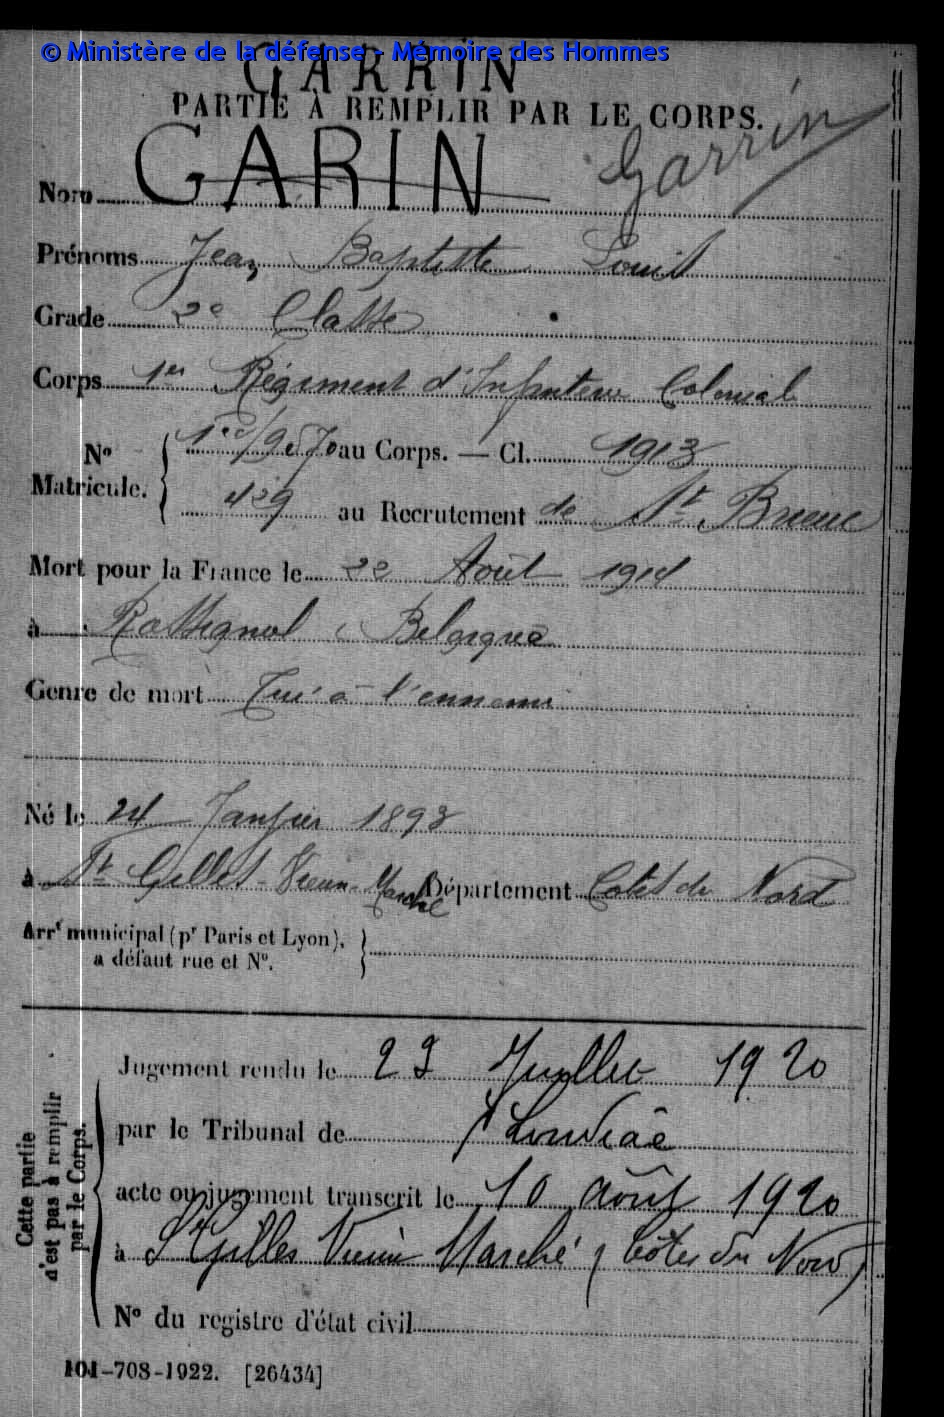 © Ministère de la défense - Mémoire des Hommes
GARRIN
PARTIE À REMPLIR PAR LE CORPS.
Nom GARIN Garrin
Prénoms Jean Baptiste Louis
Grade 2e Classe
Corps 1er Régiment d'Infanterie Colonial
No Matricule. { au Corps. — Cl. 1913
429 au Recrutement de St Brieuc
Mort pour la France le 22 Août 1914
à Rossignol Belgique
Genre de mort Tué à l'ennemi
Né le 24 Janvier 1893
à St Gilles-Vieux-Marché Département Côtes du Nord
Arrt municipal (pr Paris et Lyon), }
à défaut rue et No.
Cette partie n'est pas à remplir par le Corps.
Jugement rendu le 23 Juillet 1920
par le Tribunal de Loudéac
acte ou jugement transcrit le 10 août 1920
à St Gilles Vieux Marché (Côtes du Nord)
No du registre d'état civil
101-708-1922. [26434]